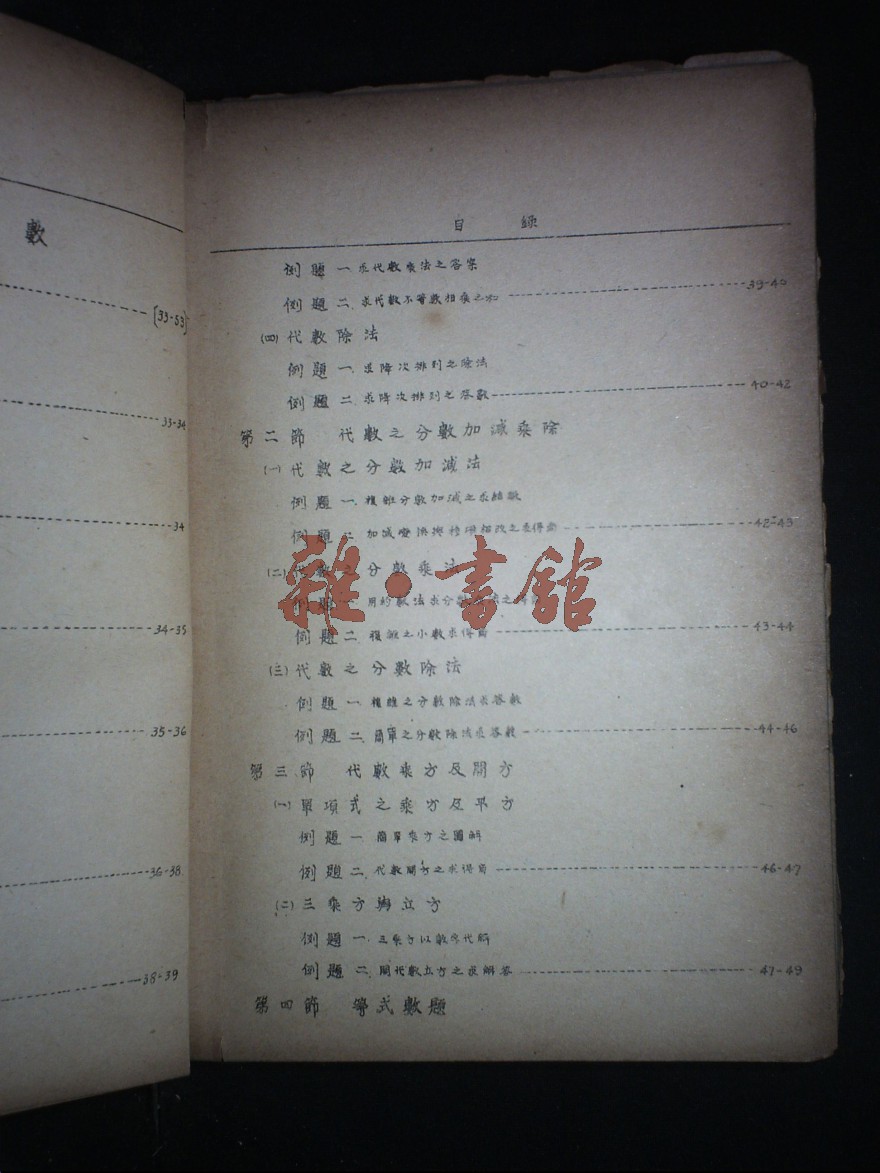 數
[33-53]
33-34
34
34-35
35-36
36-38
38-39
目 錄
例題一 求代數乘法之答案
例題二 求代數不等數相乘之和 39-40
(四)代數除法
例題一 求降次排列之除法
例題二 求降次排列之答數 40-42
第二節 代數之分數加減乘除
(一)代數之分數加減法
例題一 複雜分數加減之求結數
例題二 加減 之求得商 42-43
(二)代數之分數乘法
例題一 用約數法求分數 之
例題二 複雜之小數求得商 43-44
(三)代數之分數除法
例題一 複雜之分數除法求答數
例題二 簡單之分數除法求答數 44-46
第三節 代數乘方及開方
(一)單項式之乘方及平方
例題一 簡單乘方之圖解
例題二 代數開方之求得商 46-47
(二)三乘方與立方
例題一 三乘方以數字代解
例題二 開代數立方之求解答 47-49
第四節 等式數題
雜·書館